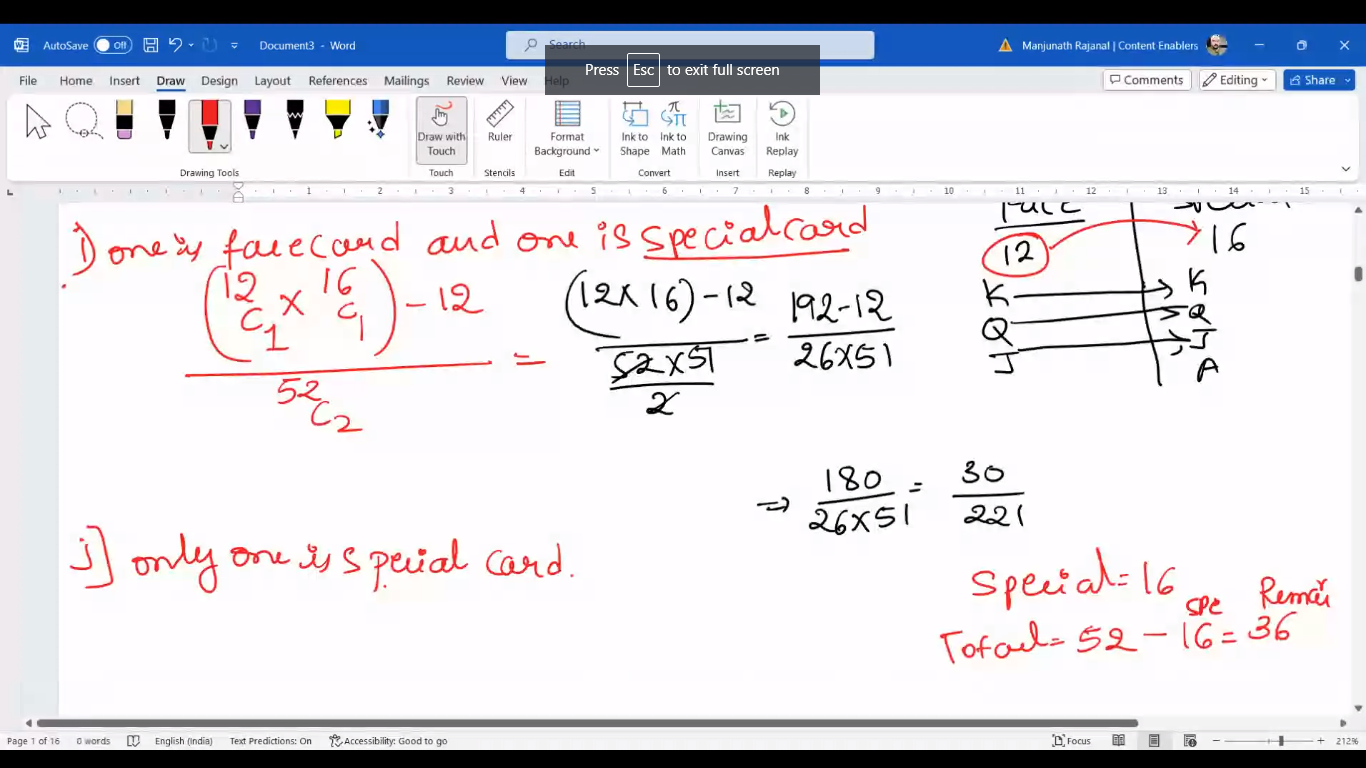 AutoSave Off Document3 - Word Search Manjunath Rajanal | Content Enablers
Press Esc to exit full screen
File Home Insert Draw Design Layout References Mailings Review View Help Comments Editing Share
Draw with Touch Ruler Format Background Ink to Shape Ink to Math Drawing Canvas Ink Replay
Drawing Tools Touch Stencils Edit Convert Insert Replay
1 2 3 4 5 6 7 8 9 10 11 12 13 14 15
i) one is face card and one is special card
(12C1 × 16C1) - 12 / 52C2 = (12×16) - 12 / 52×51 / 2 = 192-12 / 26×51
12 16
K K
Q Q
J J
A
⇒ 180 / 26×51 = 30 / 221
j] only one is special card.
Special = 16
spe Remai
Total = 52 - 16 = 36
Page 1 of 16 0 words English (India) Text Predictions: On Accessibility: Good to go Focus 212%